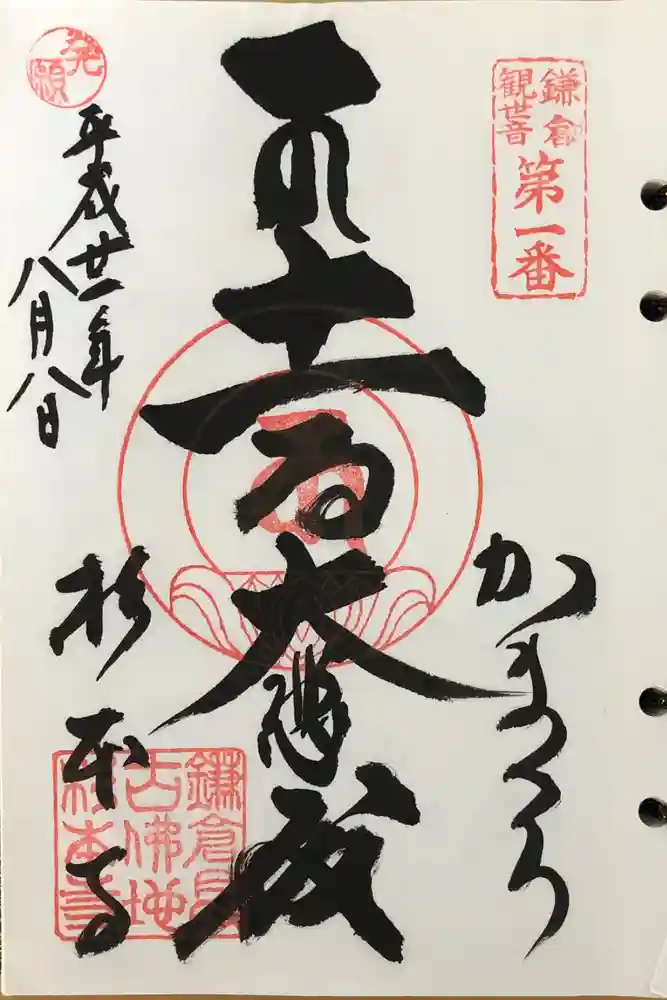 鎌倉
観世音
第一番
かまくら
十一面大悲殿
発願
平成廿一年
八月八日
杉本寺
鎌倉最
古佛地
杉本寺